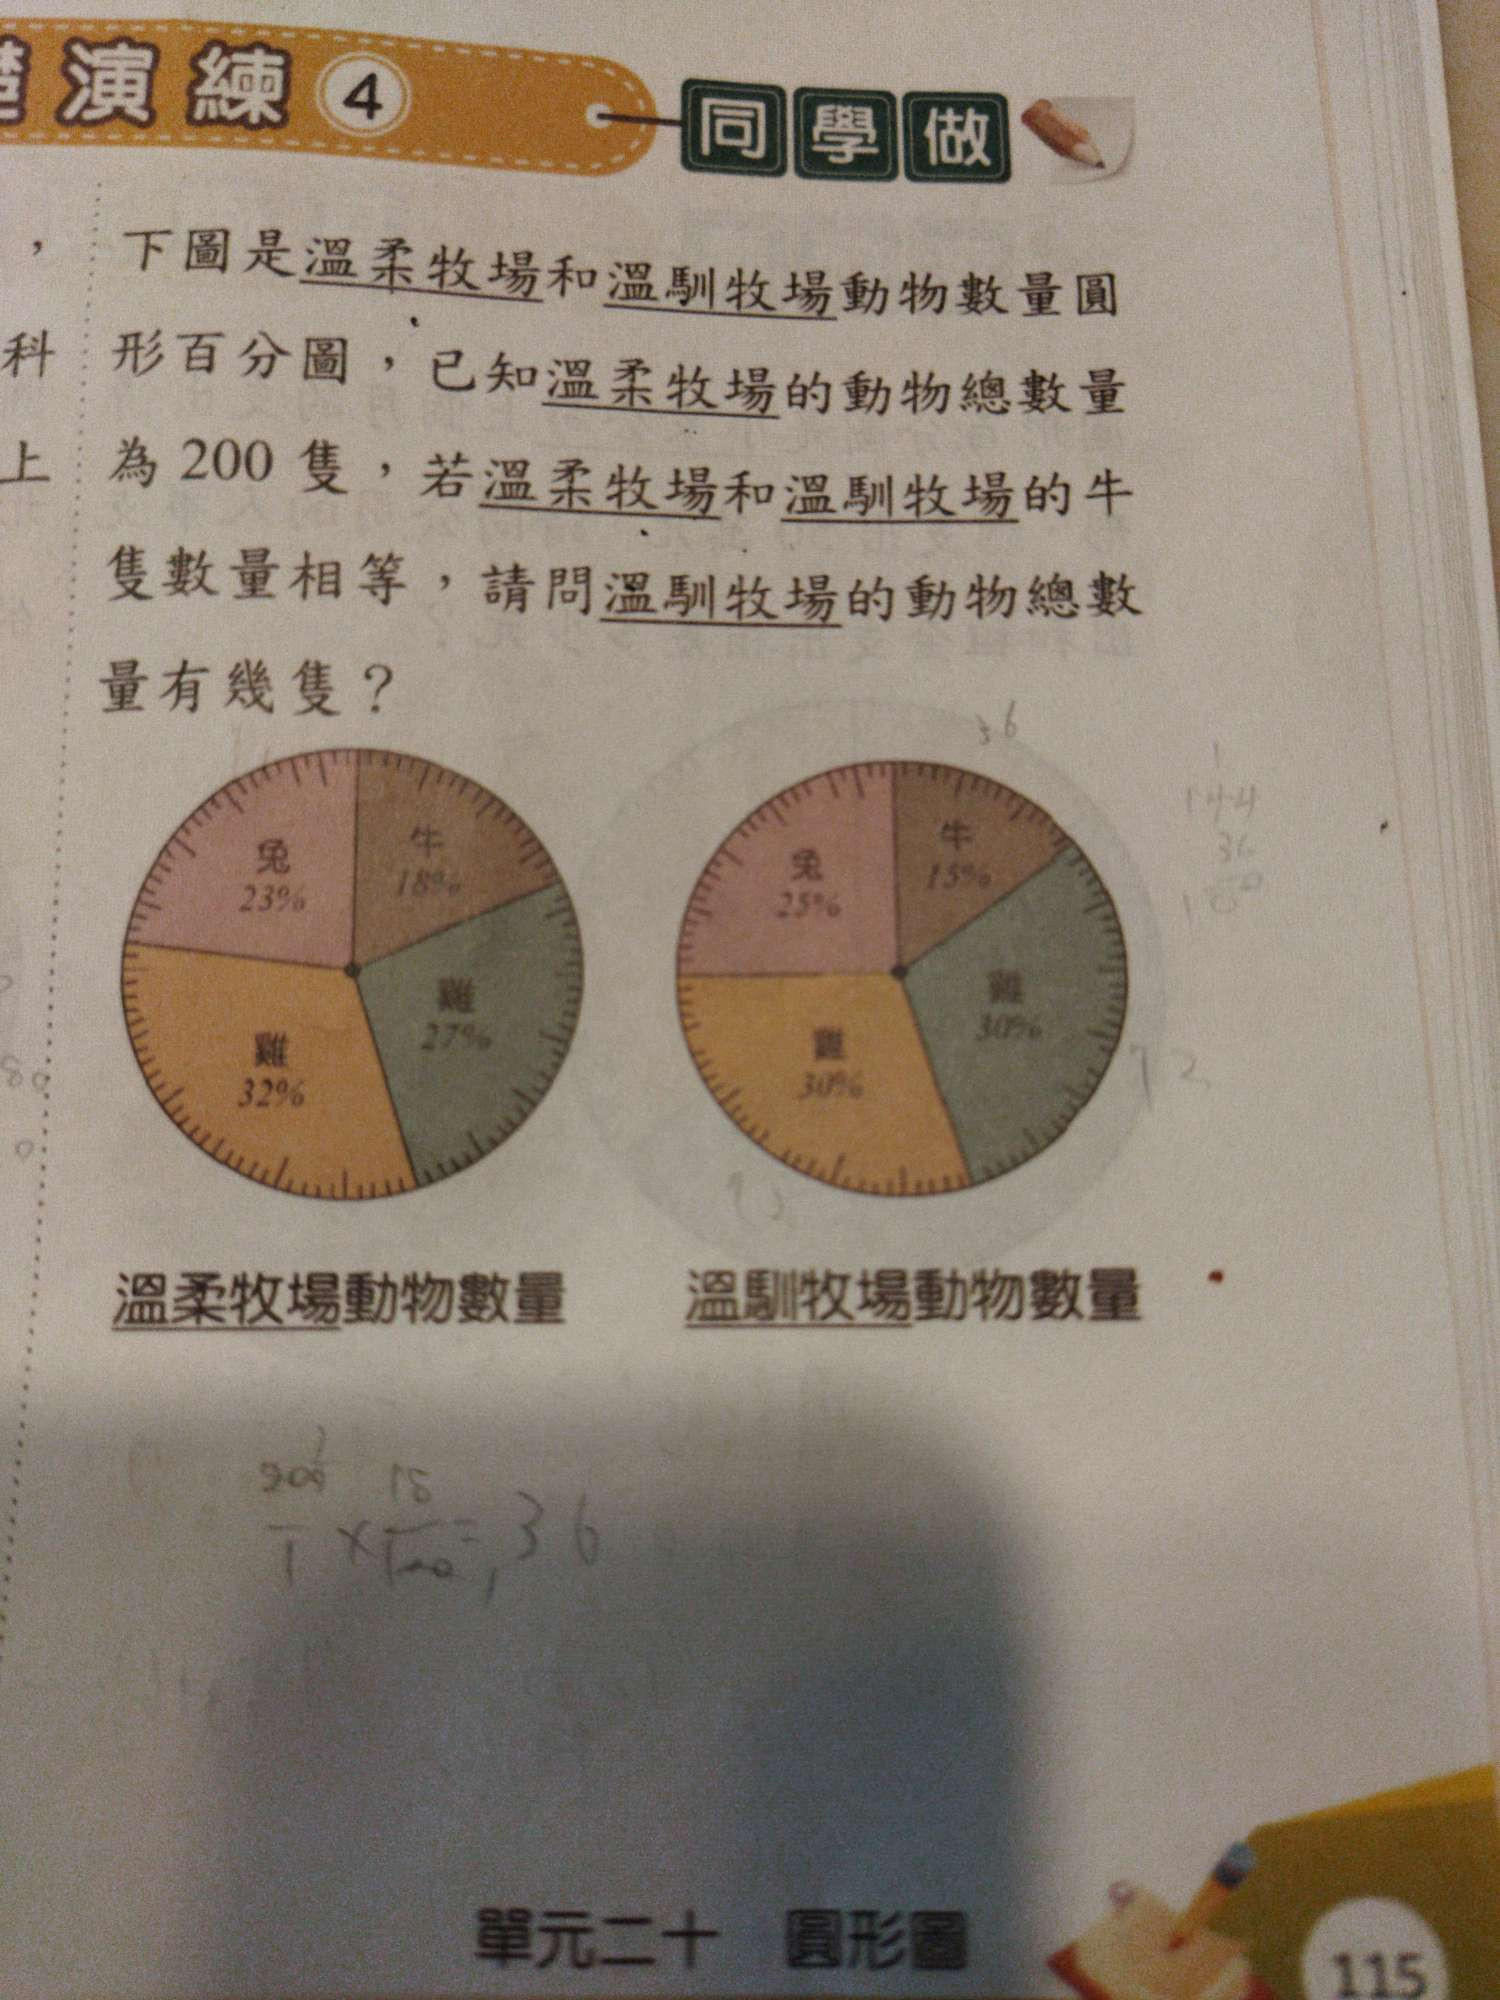 演練 4 同學做
， 下圖是溫柔牧場和溫馴牧場動物數量圓
科 形百分圖，已知溫柔牧場的動物總數量
上 為 200 隻，若溫柔牧場和溫馴牧場的牛
隻數量相等，請問溫馴牧場的動物總數
量有幾隻？
36
兔
23%
牛
18%
雞
27%
雞
32%
兔
25%
牛
15%
雞
30%
雞
30%
1
144
36
180
72
72
80
0
溫柔牧場動物數量
溫馴牧場動物數量
200/1 × 18/100 = 36
單元二十 圓形圖
115